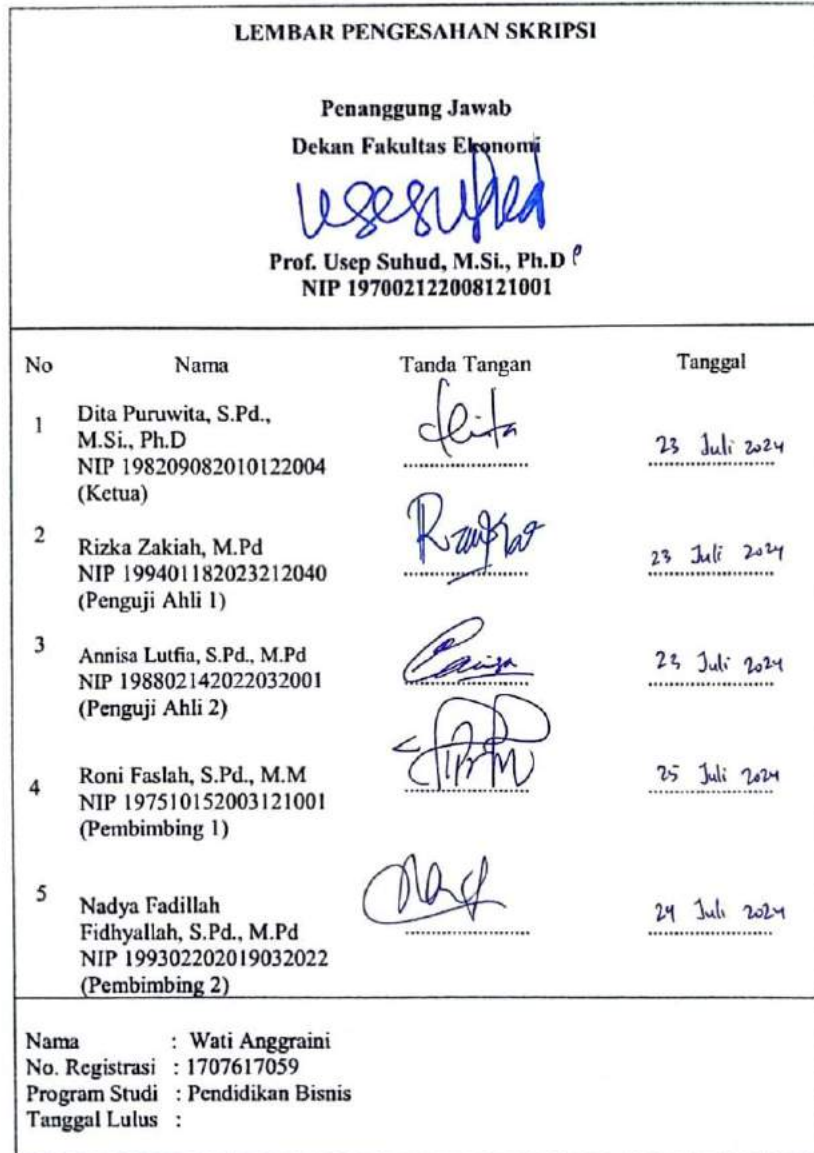 LEMBAR PENGESAHAN SKRIPSI
Penanggung Jawab
Dekan Fakultas Ekonomi
Prof. Usep Suhud, M.Si., Ph.D
NIP 197002122008121001
No Nama Tanda Tangan Tanggal
1 Dita Puruwita, S.Pd.,
M.Si., Ph.D
NIP 198209082010122004
(Ketua)
23 Juli 2024
2 Rizka Zakiah, M.Pd
NIP 199401182023212040
(Penguji Ahli 1)
23 Juli 2024
3 Annisa Lutfia, S.Pd., M.Pd
NIP 198802142022032001
(Penguji Ahli 2)
23 Juli 2024
4 Roni Faslah, S.Pd., M.M
NIP 197510152003121001
(Pembimbing 1)
25 Juli 2024
5 Nadya Fadillah
Fidhyallah, S.Pd., M.Pd
NIP 199302202019032022
(Pembimbing 2)
24 Juli 2024
Nama : Wati Anggraini
No. Registrasi : 1707617059
Program Studi : Pendidikan Bisnis
Tanggal Lulus :